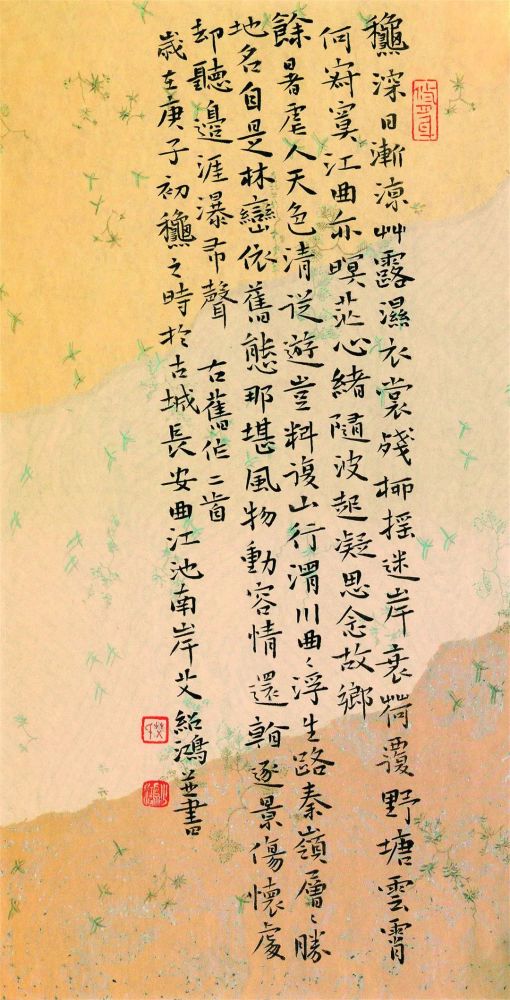 龝深日漸涼艸露濕衣裳殘柳搖迷岸衰荷覆野塘雲霄
何寂寞江曲亦暝茫心緒隨波起凝思念故鄉
餘暑虐人天色清從遊豈料復山行渭川曲〻浮生路秦嶺層〻勝
地名自是林巒依舊態那堪風物動容情還翰逐景傷懷處
却聽邊涯瀑布聲 右舊作二首
歲在庚子初龝之時於古城長安曲江池南岸艾紹鴻並書